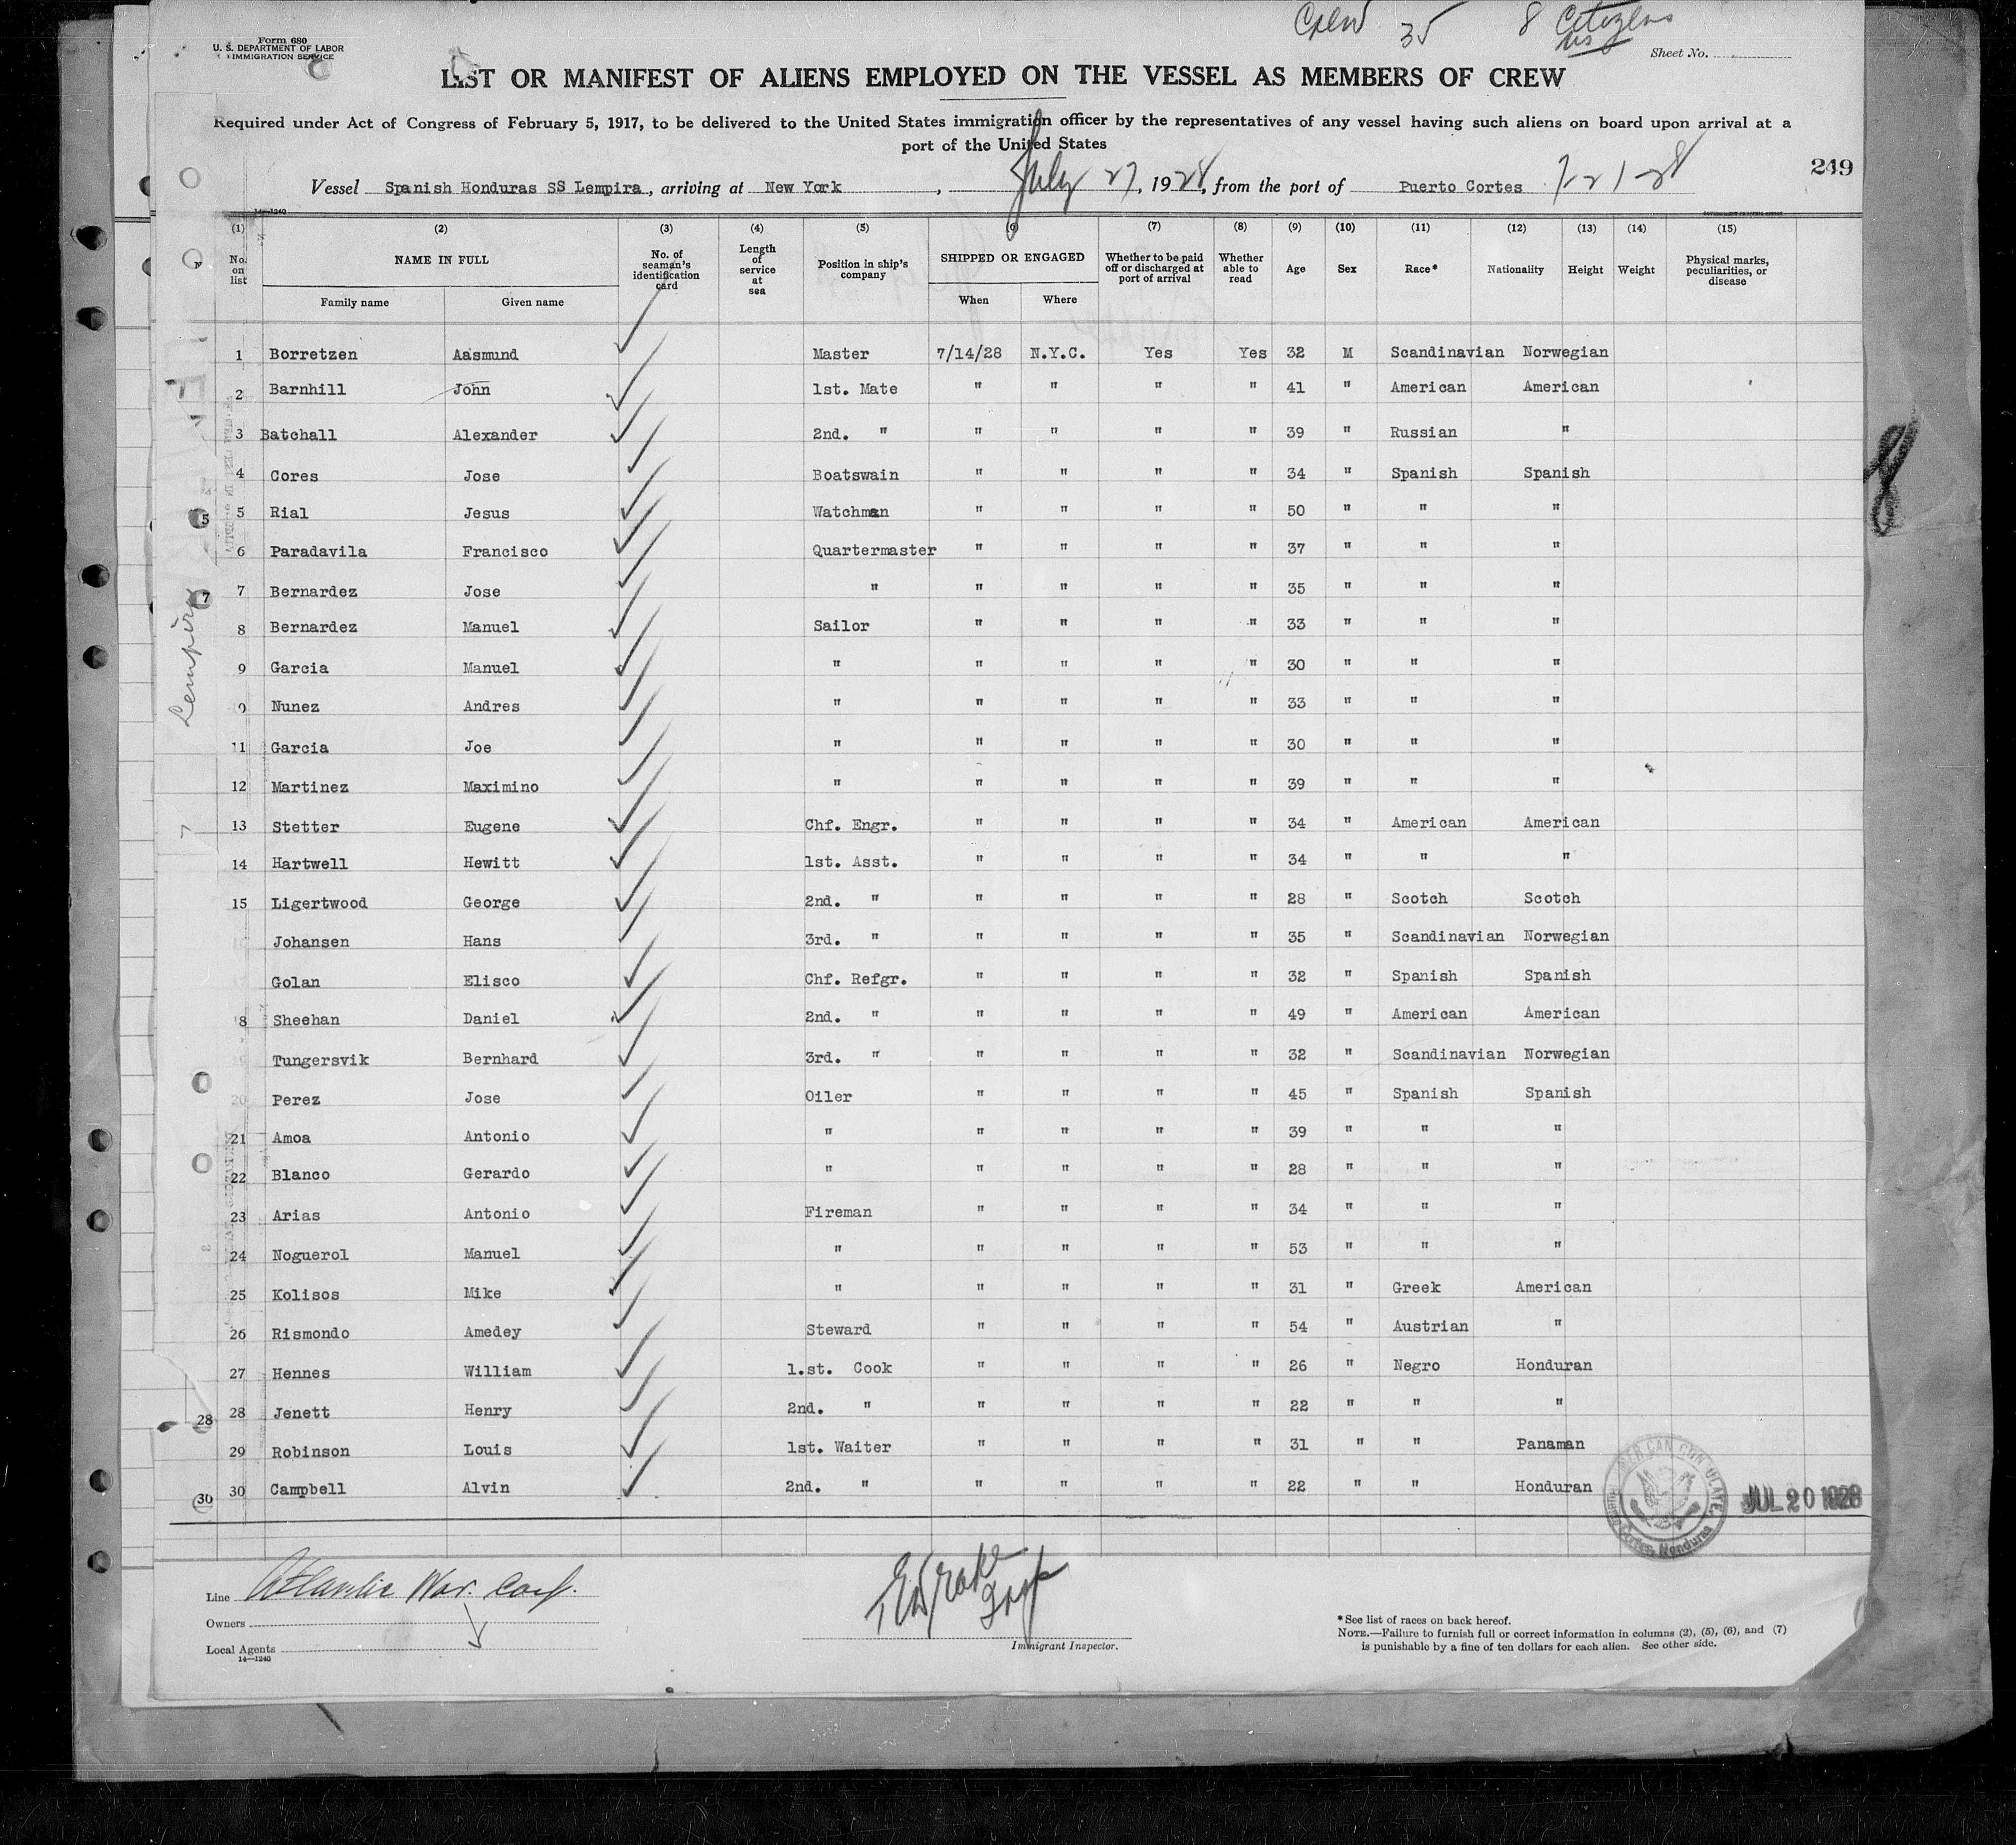 Crew 35 8 Citizens
US
Form 680
U. S. DEPARTMENT OF LABOR
IMMIGRATION SERVICE
Sheet No.
LIST OR MANIFEST OF ALIENS EMPLOYED ON THE VESSEL AS MEMBERS OF CREW
Required under Act of Congress of February 5, 1917, to be delivered to the United States immigration officer by the representatives of any vessel having such aliens on board upon arrival at a
port of the United States
249
Vessel Spanish Honduras SS Lempira, arriving at New York, July 27, 1928, from the port of Puerto Cortes 7-21-28
14—1240
(1) (2) (3) (4) (5) (6) (7) (8) (9) (10) (11) (12) (13) (14) (15)
No. on list NAME IN FULL Family name Given name No. of seaman's identification card Length of service at sea Position in ship's company SHIPPED OR ENGAGED When Where Whether to be paid off or discharged at port of arrival Whether able to read Age Sex Race* Nationality Height Weight Physical marks, peculiarities, or disease
1 Borretzen Aasmund Master 7/14/28 N.Y.C. Yes Yes 32 M Scandinavian Norwegian
2 Barnhill John 1st. Mate " " " " 41 " American American
3 Batchall Alexander 2nd. " " " " " 39 " Russian "
4 Cores Jose Boatswain " " " " 34 " Spanish Spanish
5 Rial Jesus Watchman " " " " 50 " " "
6 Paradavila Francisco Quartermaster " " " " 37 " " "
7 Bernardez Jose " " " " " 35 " " "
8 Bernardez Manuel Sailor " " " " 33 " " "
9 Garcia Manuel " " " " " 30 " " "
0 Nunez Andres " " " " " 33 " " "
11 Garcia Joe " " " " " 30 " " "
12 Martinez Maximino " " " " " 39 " " "
13 Stetter Eugene Chf. Engr. " " " " 34 " American American
14 Hartwell Hewitt 1st. Asst. " " " " 34 " " "
15 Ligertwood George 2nd. " " " " " 28 " Scotch Scotch
Johansen Hans 3rd. " " " " " 35 " Scandinavian Norwegian
Golan Elisco Chf. Refgr. " " " " 32 " Spanish Spanish
8 Sheehan Daniel 2nd. " " " " " 49 " American American
Tungersvik Bernhard 3rd. " " " " " 32 " Scandinavian Norwegian
20 Perez Jose Oiler " " " " 45 " Spanish Spanish
21 Amoa Antonio " " " " " 39 " " "
22 Blanco Gerardo " " " " " 28 " " "
23 Arias Antonio Fireman " " " " 34 " " "
24 Noguerol Manuel " " " " " 53 " " "
25 Kolisos Mike " " " " " 31 " Greek American
26 Rismondo Amedey Steward " " " " 54 " Austrian "
27 Hennes William 1.st. Cook " " " " 26 " Negro Honduran
28 28 Jenett Henry 2nd. " " " " " 22 " " "
29 Robinson Louis 1st. Waiter " " " " 31 " " Panaman
30 30 Campbell Alvin 2nd. " " " " " 22 " " Honduran
5
7
Lempira
8
AMERICAN CONSULATE
Puerto Cortes, Honduras
JUL 20 1928
Line Atlantic Nav. Corp.
Owners
Local Agents
14—1240
Immigrant Inspector.
*See list of races on back hereof.
NOTE.—Failure to furnish full or correct information in columns (2), (5), (6), and (7)
is punishable by a fine of ten dollars for each alien. See other side.